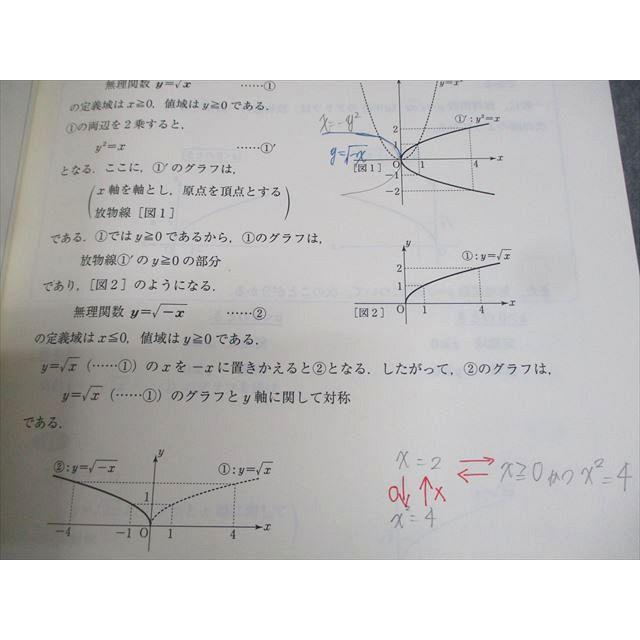 無理関数 y=√x ……①
の定義域は x≧0, 値域は y≧0 である.
①の両辺を2乗すると,
y²=x ……①′
となる. ここに, ①′のグラフは,
x 軸を軸とし, 原点を頂点とする
放物線 [図1]
である. ①では y≧0 であるから, ①のグラフは,
放物線①′の y≧0 の部分
であり, [図2] のようになる.
無理関数 y=√−x ……②
の定義域は x≦0, 値域は y≧0 である.
y=√x (……①) の x を −x に置きかえると②となる. したがって, ②のグラフは,
y=√x (……①) のグラフと y 軸に関して対称
である.
y=x²
x=-y²
y=√-x
①′: y²=x
2
1
O
1
4
x
−1
−2
[図1]
y
①: y=√x
2
1
O
1
4
x
[図2]
y
②: y=√−x
①: y=√x
1
−4
−1
O
1
4
x
x=2 ⇄ x≧0 かつ x²=4
○↓ ↑×
x²=4